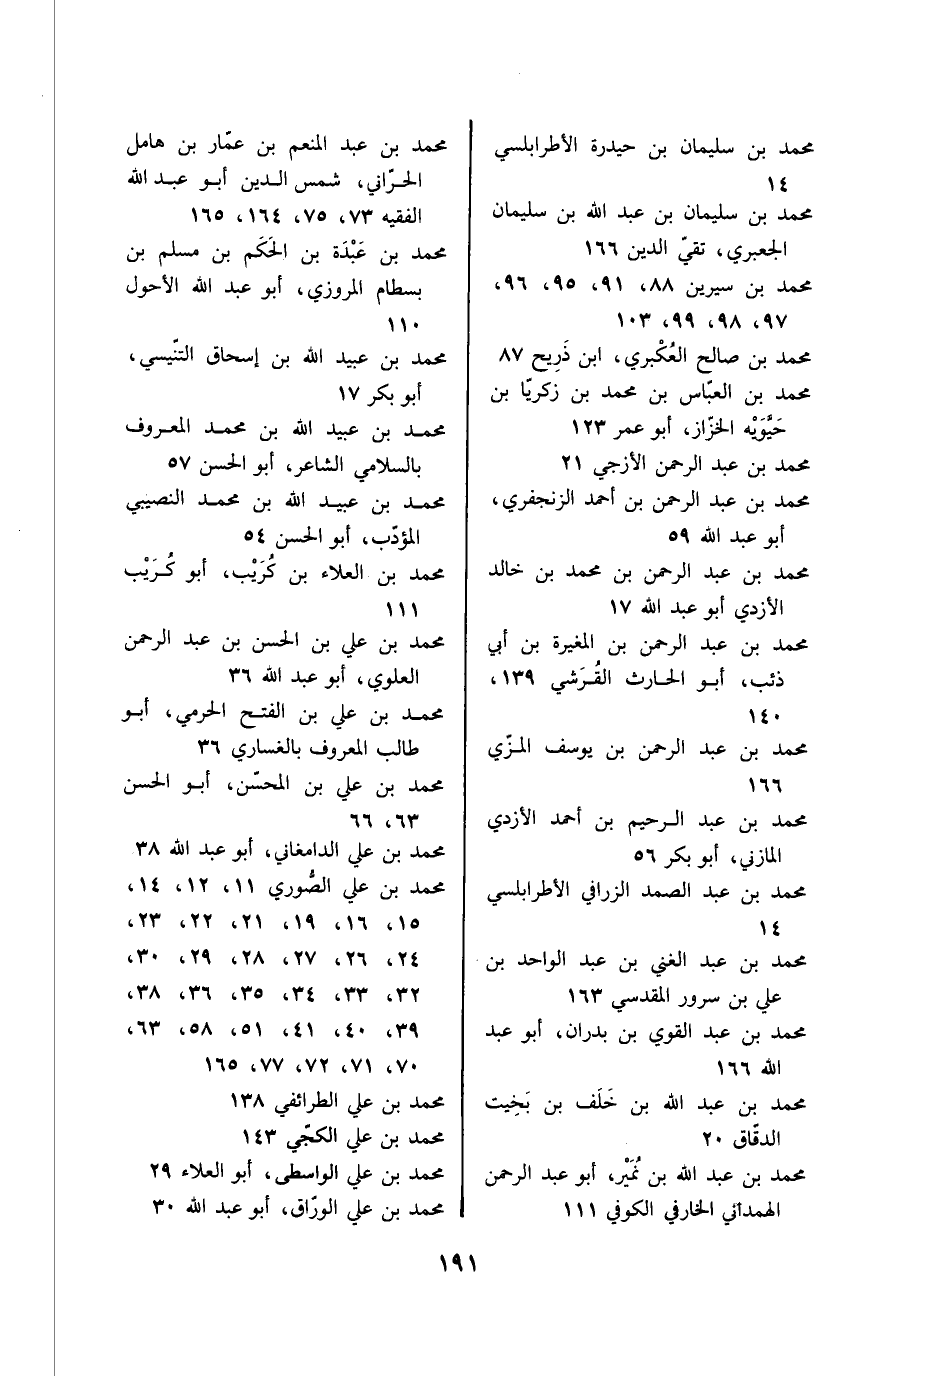 محمد بن سليمان بن حيدرة الأطرابلسي
١٤
محمد بن سليمان بن عبد الله بن سليمان
الجعبري، تقيّ الدين ١٦٦
محمد بن سيرين ٨٨، ٩١، ٩٥، ٩٦،
٩٧، ٩٨، ٩٩، ١٠٣
محمد بن صالح العُكْبري، ابن ذَرِيح ٨٧
محمد بن العبّاس بن محمد بن زكريّا بن
حَيُّوَيْه الخزّاز، أبو عمر ١٢٣
محمد بن عبد الرحمن الأزجي ٢١
محمد بن عبد الرحمن بن أحمد الزنجفري،
أبو عبد الله ٥٩
محمد بن عبد الرحمن بن محمد بن خالد
الأزدي أبو عبد الله ١٧
محمد بن عبد الرحمن بن المغيرة بن أبي
ذئب، أبو الحارث القُرَشي ١٣٩،
١٤٠
محمد بن عبد الرحمن بن يوسف المزّي
١٦٦
محمد بن عبد الرحيم بن أحمد الأزدي
المازني، أبو بكر ٥٦
محمد بن عبد الصمد الزرافي الأطرابلسي
١٤
محمد بن عبد الغني بن عبد الواحد بن
علي بن سرور المقدسي ١٦٣
محمد بن عبد القوي بن بدران، أبو عبد
الله ١٦٦
محمد بن عبد الله بن خَلَف بن بَخِيت
الدقّاق ٢٠
محمد بن عبد الله بن نُمَيْر، أبو عبد الرحمن
الهمداني الخارفي الكوفي ١١١
محمد بن عبد المنعم بن عمّار بن هامل
الحرّاني، شمس الدين أبو عبد الله
الفقيه ٧٣، ٧٥، ١٦٤، ١٦٥
محمد بن عَبْدَة بن الحَكَم بن مسلم بن
بسطام المروزي، أبو عبد الله الأحول
١١٠
محمد بن عبيد الله بن إسحاق التنّيسي،
أبو بكر ١٧
محمد بن عبيد الله بن محمد المعروف
بالسلامي الشاعر، أبو الحسن ٥٧
محمد بن عبيد الله بن محمد النصيبي
المؤدّب، أبو الحسن ٥٤
محمد بن العلاء بن كُرَيْب، أبو كُرَيْب
١١١
محمد بن علي بن الحسن بن عبد الرحمن
العلوي، أبو عبد الله ٣٦
محمد بن علي بن الفتح الحرمي، أبو
طالب المعروف بالغساري ٣٦
محمد بن علي بن المحسّن، أبو الحسن
٦٣، ٦٦
محمد بن علي الدامغاني، أبو عبد الله ٣٨
محمد بن علي الصُّوري ١١، ١٢، ١٤،
١٥، ١٦، ١٩، ٢١، ٢٢، ٢٣،
٢٤، ٢٦، ٢٧، ٢٨، ٢٩، ٣٠،
٣٢، ٣٣، ٣٤، ٣٥، ٣٦، ٣٨،
٣٩، ٤٠، ٤١، ٥١، ٥٨، ٦٣،
٧٠، ٧١، ٧٢، ٧٧، ١٦٥
محمد بن علي الطرائفي ١٣٨
محمد بن علي الكجّي ١٤٣
محمد بن علي الواسطي، أبو العلاء ٢٩
محمد بن علي الورّاق، أبو عبد الله ٣٠
١٩١